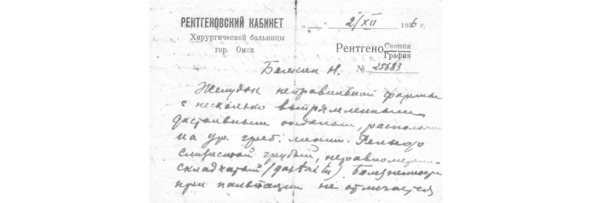 РЕНТГЕНОВСКИЙ КАБИНЕТ
Хирургической больницы
гор. Омск
2/XII 1936 г.
Рентгено Скопия
Графия
№ 25683
Белкин Н.
Желудок неправильной формы
с несколько выпрямленным
дистальным отделом, располож
на ур. греб. линии. Рельеф
слизистой грубый, неравномерно
складчатый (gastrit). Болезненность
при пальпации не отмечается